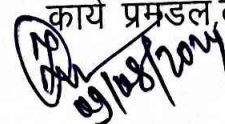 कार्य प्रमंडल,
09/08/2024